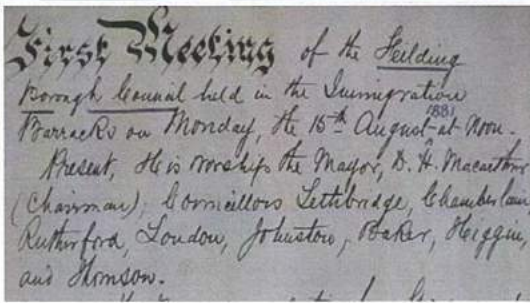 First Meeting of the Feilding
Borough Council held in the Immigration
Barracks on Monday, the 15th August 1881 at Noon.
Present, His worship the Mayor, D. H. Macarthur
(Chairman); Councillors Lethbridge, Chamberlain
Rutherford, London, Johnston, Baker, Higgin,
and Thomson.